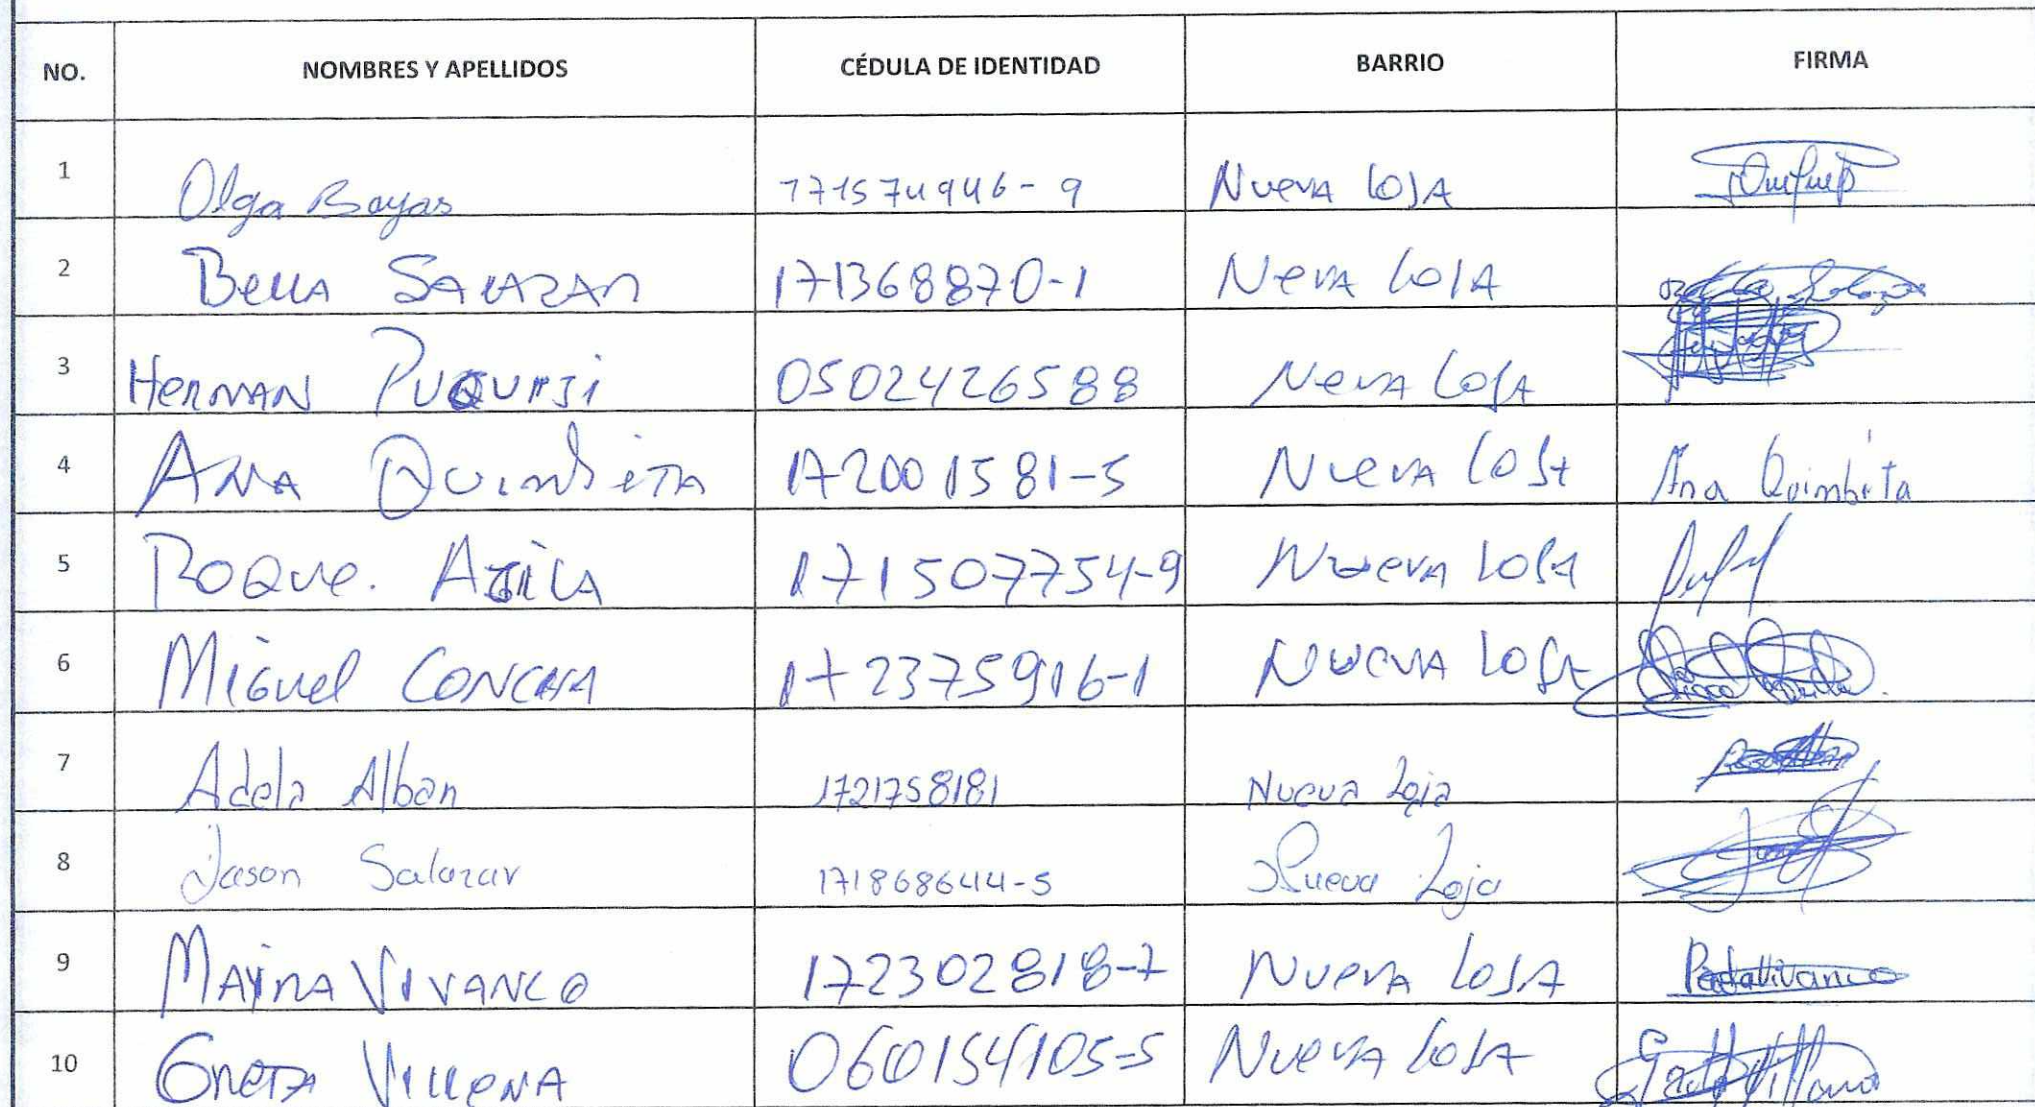 NO. NOMBRES Y APELLIDOS CÉDULA DE IDENTIDAD BARRIO FIRMA
1 Olga Bayas 171574946-9 Nueva LOJA
2 Bella SALAZAR 171368870-1 Neva LOJA
3 HERMAN 0502426588 Neva LOJA
4 ANA Quimbita 172001581-5 Nueva LOJA Ana Quimbita
5 ROQue. 171507754-9 Nueva LOJA
6 Miguel CONCHA 172375916-1 Nueva LOJA
7 Adela Alban 1721758181 Nueva Loja
8 Jason Salazar 171868644-5 Nueva Loja
9 MAYRA VIVANCO 172302818-7 Nueva LOJA
10 GRETA VILLENA 060154105-5 Nueva LOJA